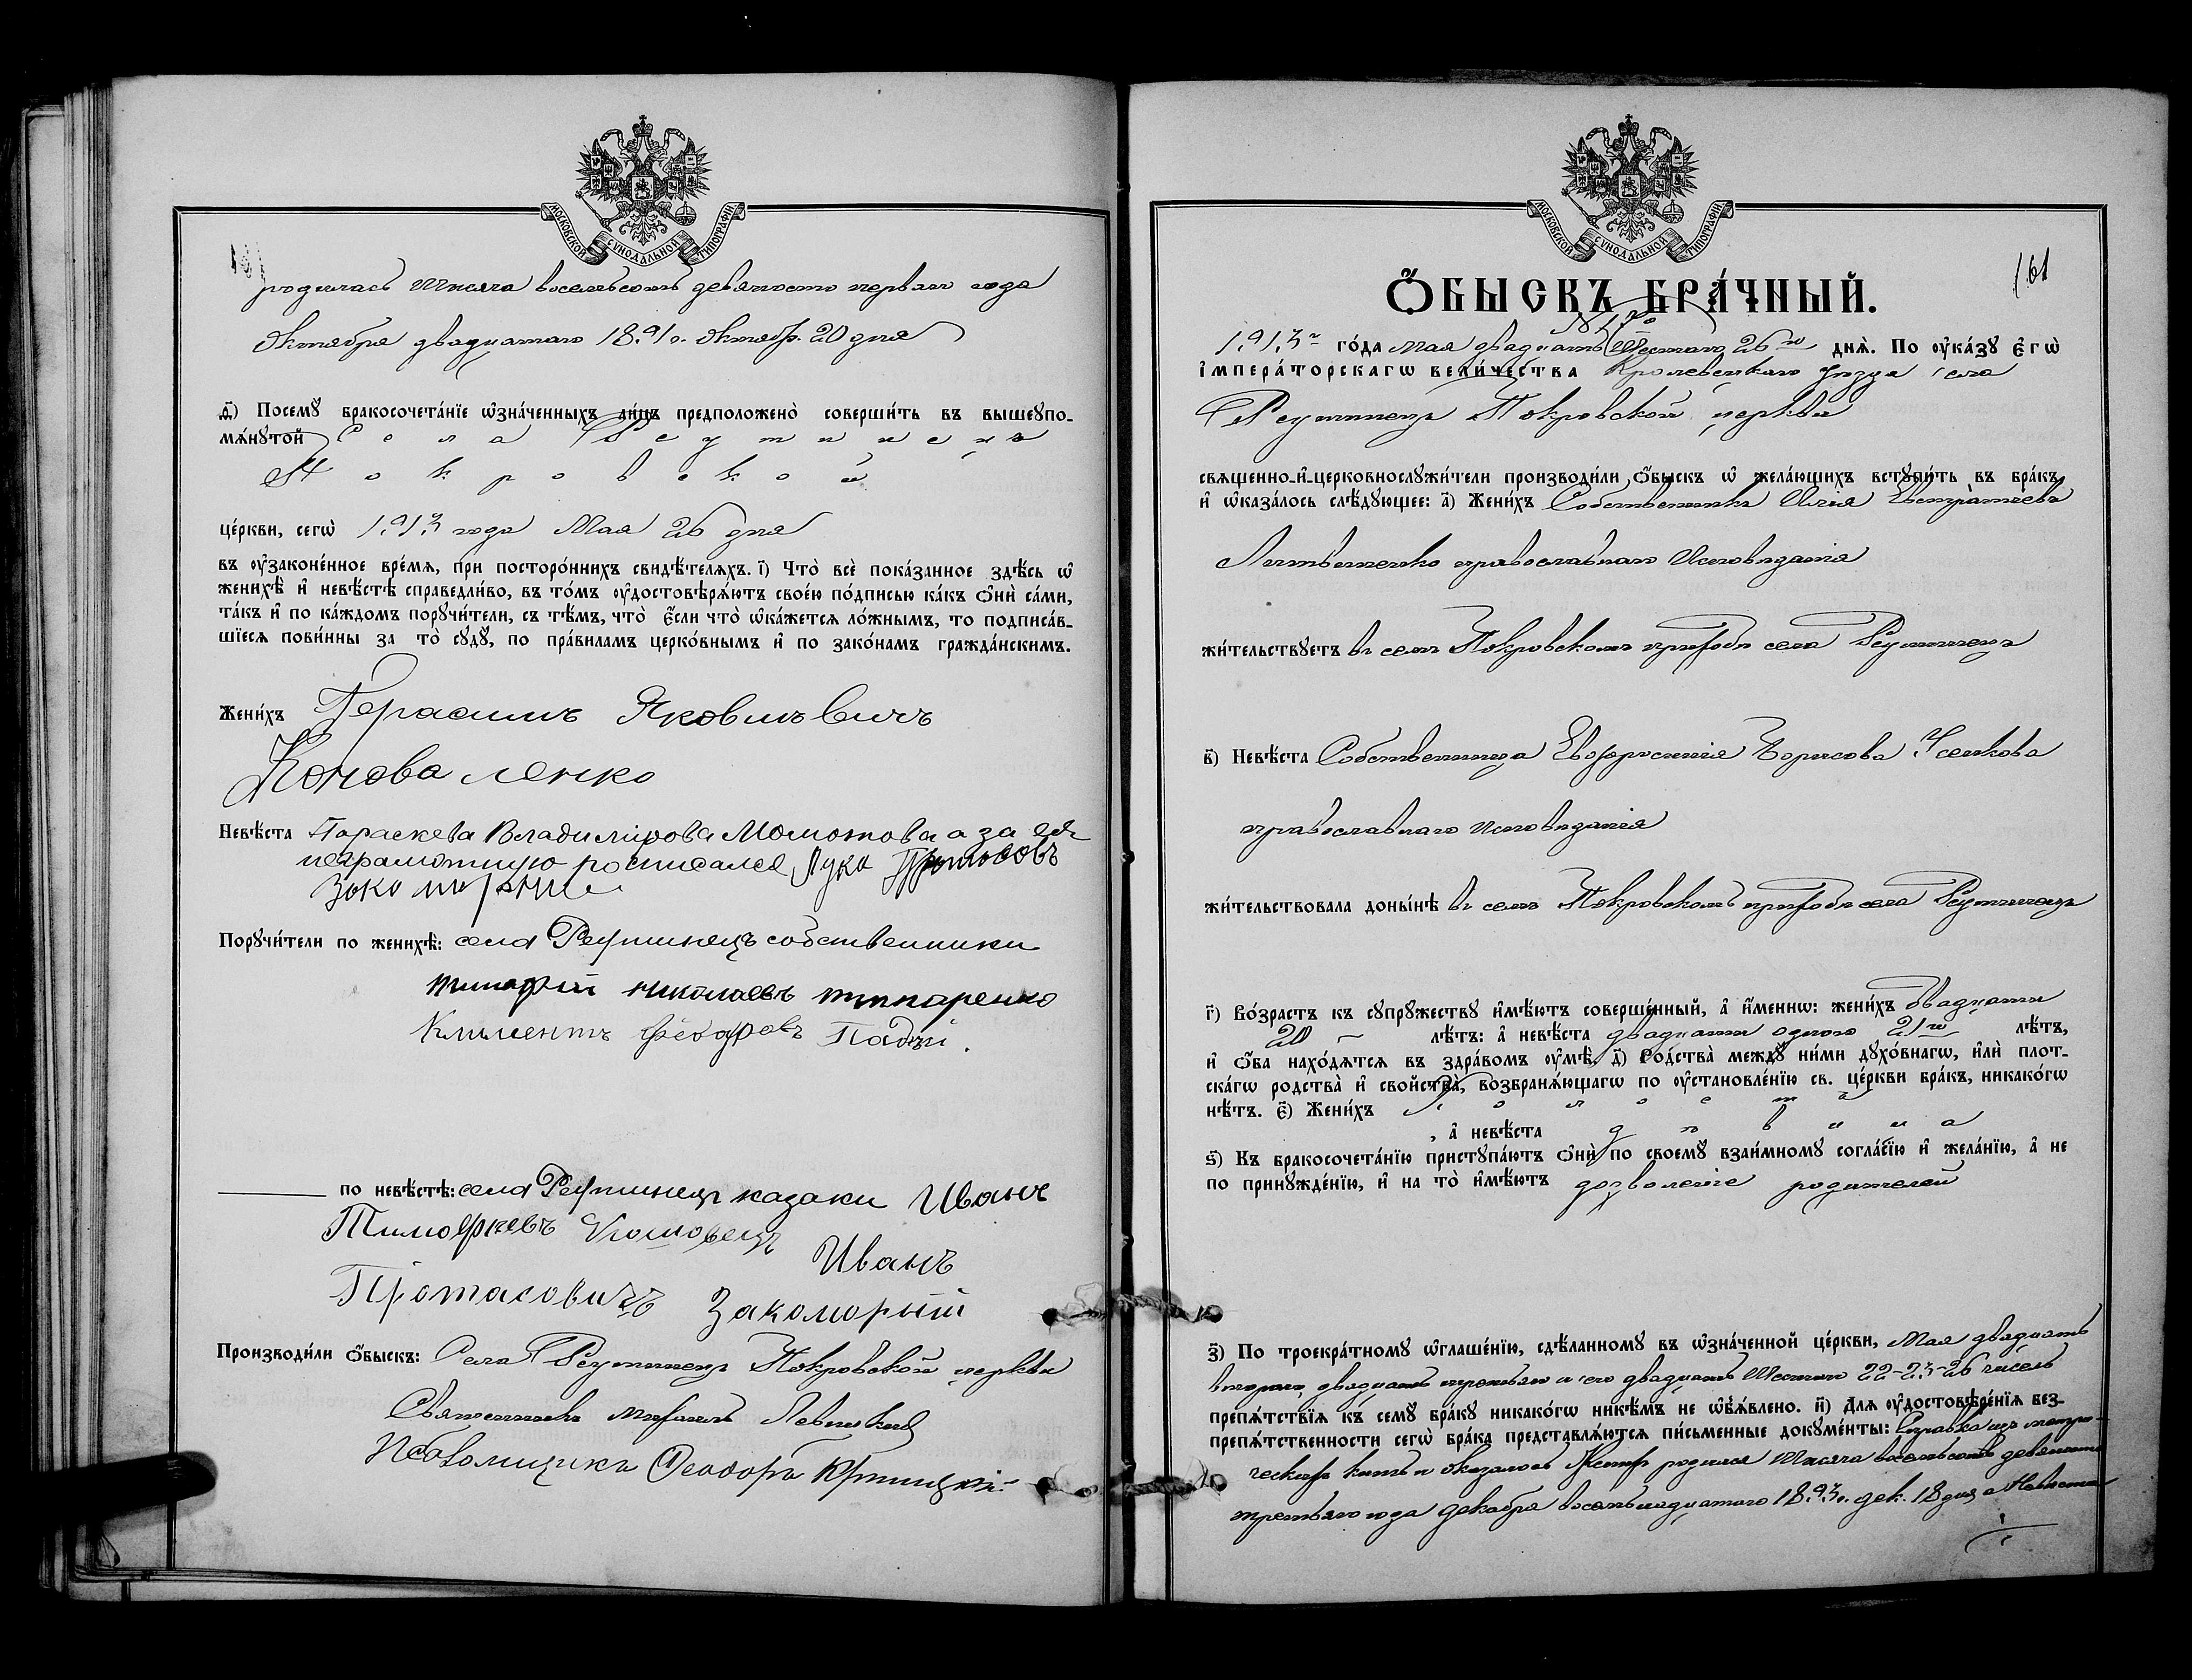 МОСКОВСКОЙ СѴНОДАЛЬНОЙ ТИПОГРАФІИ
родилась тысяча восемьсотъ девяносто перваго года
октября двадцатаго 1891 г. октябр. 20 дня
д҃і) Посемꙋ бракосочета́нїе ѡ҆зна́ченныхъ ли́цъ предположено̀ соверши́ть въ вышеупо-
мѧ́нꙋтой Села Реутинецъ
Покровской
це́ркви, сегѡ̀ 1913 года Мая 26 дня
въ ᲂу҆законе́нное вре́мѧ, при посторо́ннихъ свидѣ́телѧхъ. і҃) Что̀ всѐ пока́занное здѣ́сь ѡ҆
женихѣ̀ и҆ невѣ́стѣ справедли́во, въ то́мъ ᲂу҆достовѣрѧ́ютъ свое́ю по́дписью ка́къ ѻ҆нѝ са́ми,
та́къ и҆ по ка́ждомъ порꙋчи́тели, съ тѣ́мъ, что̀ є҆́сли что̀ ѡ҆ка́жетсѧ ло́жнымъ, то подписа́в-
шїесѧ пови́нны за то̀ сꙋдꙋ̀, по пра́виламъ церко́внымъ и҆ по зако́намъ гражда́нскимъ.
Жени́хъ Герасимъ Яковлѣвичъ
Коноваленко
Невѣ́ста Параскева Владимірова Момотова а за ея
неграмотную росписался Лука
Порꙋчи́тели по женихѣ̀: села Реутинецъ собственники
николаевъ
Климентъ
по невѣ́стѣ: села Реутинецъ казаки Иванъ
Тимофѣевъ
Иванъ
Протасовичъ Закоморный
Производи́ли ѻ҆́быскъ: Села Реутинецъ Покровской церкви
Священникъ Михаилъ Левицкій
Псаломщикъ Ѳеодоръ
МОСКОВСКОЙ СѴНОДАЛЬНОЙ ТИПОГРАФІИ
161
Ѻ҆́БЫСКЪ БРА́ЧНЫЙ.
1913 го́да Мая двадцать шестаго 26 го днѧ̀. По ᲂу҆ка́зꙋ Є҆гѡ̀
І҆мпера́торскагѡ вели́чества Кролевецкаго уѣзда села
Реутинецъ Покровской церкви
свѧщенно-и҆-церковнослꙋжи́тели производи́ли ѻ҆́быскъ ѡ҆ жела́ющихъ встꙋпи́ть въ бра́къ,
и҆ ѡ҆каза́лось слѣ́дꙋющее: а҃) Жени́хъ Собственникъ Илія Евстратіевъ
Литвиненко православнаго исповѣданія
жи́тельствꙋетъ въ семъ Покровскомъ приходѣ села Реутинецъ
в҃) Невѣ́ста Собственница Евфросинія Борисова Усенкова
православнаго исповѣданія
жи́тельствовала доны́нѣ въ семъ Покровскомъ приходѣ села Реутинецъ
г҃) Во́зрастъ къ сꙋпрꙋ́жествꙋ и҆мѣ́ютъ соверше́нный, а҆ и҆́менно: жени́хъ двадцати
20 лѣ́тъ: а҆ невѣ́ста двадцати одного 21 го лѣ́тъ,
и҆ ѻ҆́ба нахо́дѧтсѧ въ здра́вомъ ᲂу҆мѣ̀. д҃) Ро́дства междꙋ̀ ни́ми дꙋхо́внагѡ, и҆лѝ плот-
ска́гѡ родства̀ и҆ свойства̀, возбранѧ́ющагѡ по ᲂу҆становле́нїю св. це́ркви бра́къ, никако́гѡ
нѣ́тъ. є҃) Жени́хъ Холостъ
, а҆ невѣ́ста дѣвица
ѕ҃) Къ бракосочета́нїю пристꙋпа́ютъ ѻ҆нѝ по своемꙋ̀ взаи́мномꙋ согла́сїю и҆ жела́нїю, а҆ не
по принꙋжде́нїю, и҆ на то̀ и҆мѣ́ютъ дозволеніе родителей
з҃) По троекра́тномꙋ ѡ҆глаше́нїю, сдѣ́ланномꙋ въ ѡ҆зна́ченной це́ркви, Мая двадцать
втораго, двадцать третьяго и сего двадцать шестаго 22-23-26 чиселъ
препѧ́тствїѧ къ семꙋ̀ бра́кꙋ никако́гѡ никѣ́мъ не ѡ҆б̾ѧ́влено. и҃) Длѧ ᲂу҆достовѣре́нїѧ без-
препѧ́тственности сегѡ̀ бра́ка представлѧ́ютсѧ пи́сьменные докꙋме́нты: Справка изъ метри-
ческихъ книгъ и оказалось Женихъ родился тысяча восемьсотъ девяносто
третьяго года декабря восемьнадцатаго 1893 г. дек. 18 дня а Невѣста